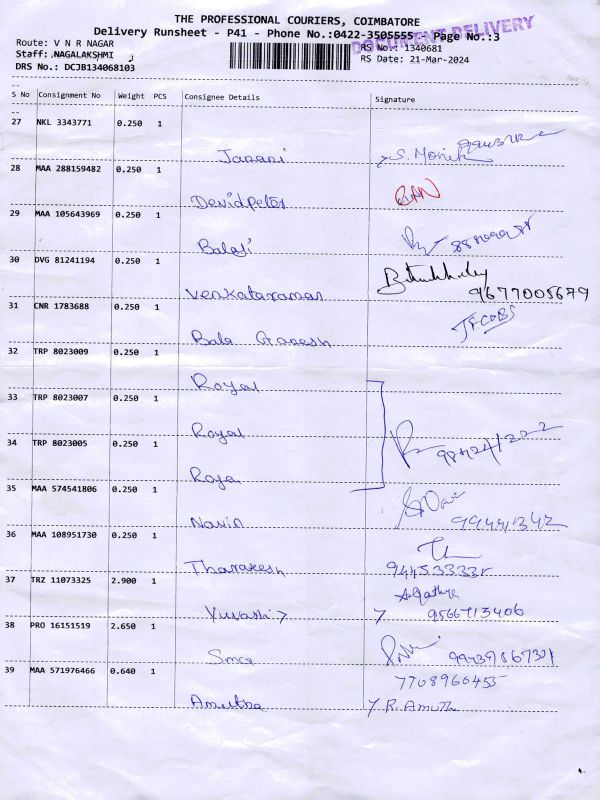 THE PROFESSIONAL COURIERS, COIMBATORE
Delivery Runsheet - P41 - Phone No.:0422-3505555 Page No.:3
DOCUMENT DELIVERY
Route: V N R NAGAR
RS No.: 1340681
Staff: NAGALAKSHMI
RS Date: 21-Mar-2024
DRS No.: DCJB134068103
S No Consignment No Weight PCS Consignee Details Signature
27 NKL 3343771 0.250 1
Janani S. Monik
28 MAA 288159482 0.250 1
Devidpeter
29 MAA 105643969 0.250 1
Balaji
30 DVG 81241194 0.250 1
Venkataraman 9677005679
31 CNR 1783688 0.250 1
JACOBS
Bala Ganesh
32 TRP 8023009 0.250 1
Royal
33 TRP 8023007 0.250 1
Royal
34 TRP 8023005 0.250 1
Roja
35 MAA 574541806 0.250 1
Navin
36 MAA 108951730 0.250 1
Tharakesh
37 TRZ 11073325 2.900 1
9566713406
38 PRO 16151519 2.650 1
39 MAA 571976466 0.640 1
7708966455
Amutha R. Amuth